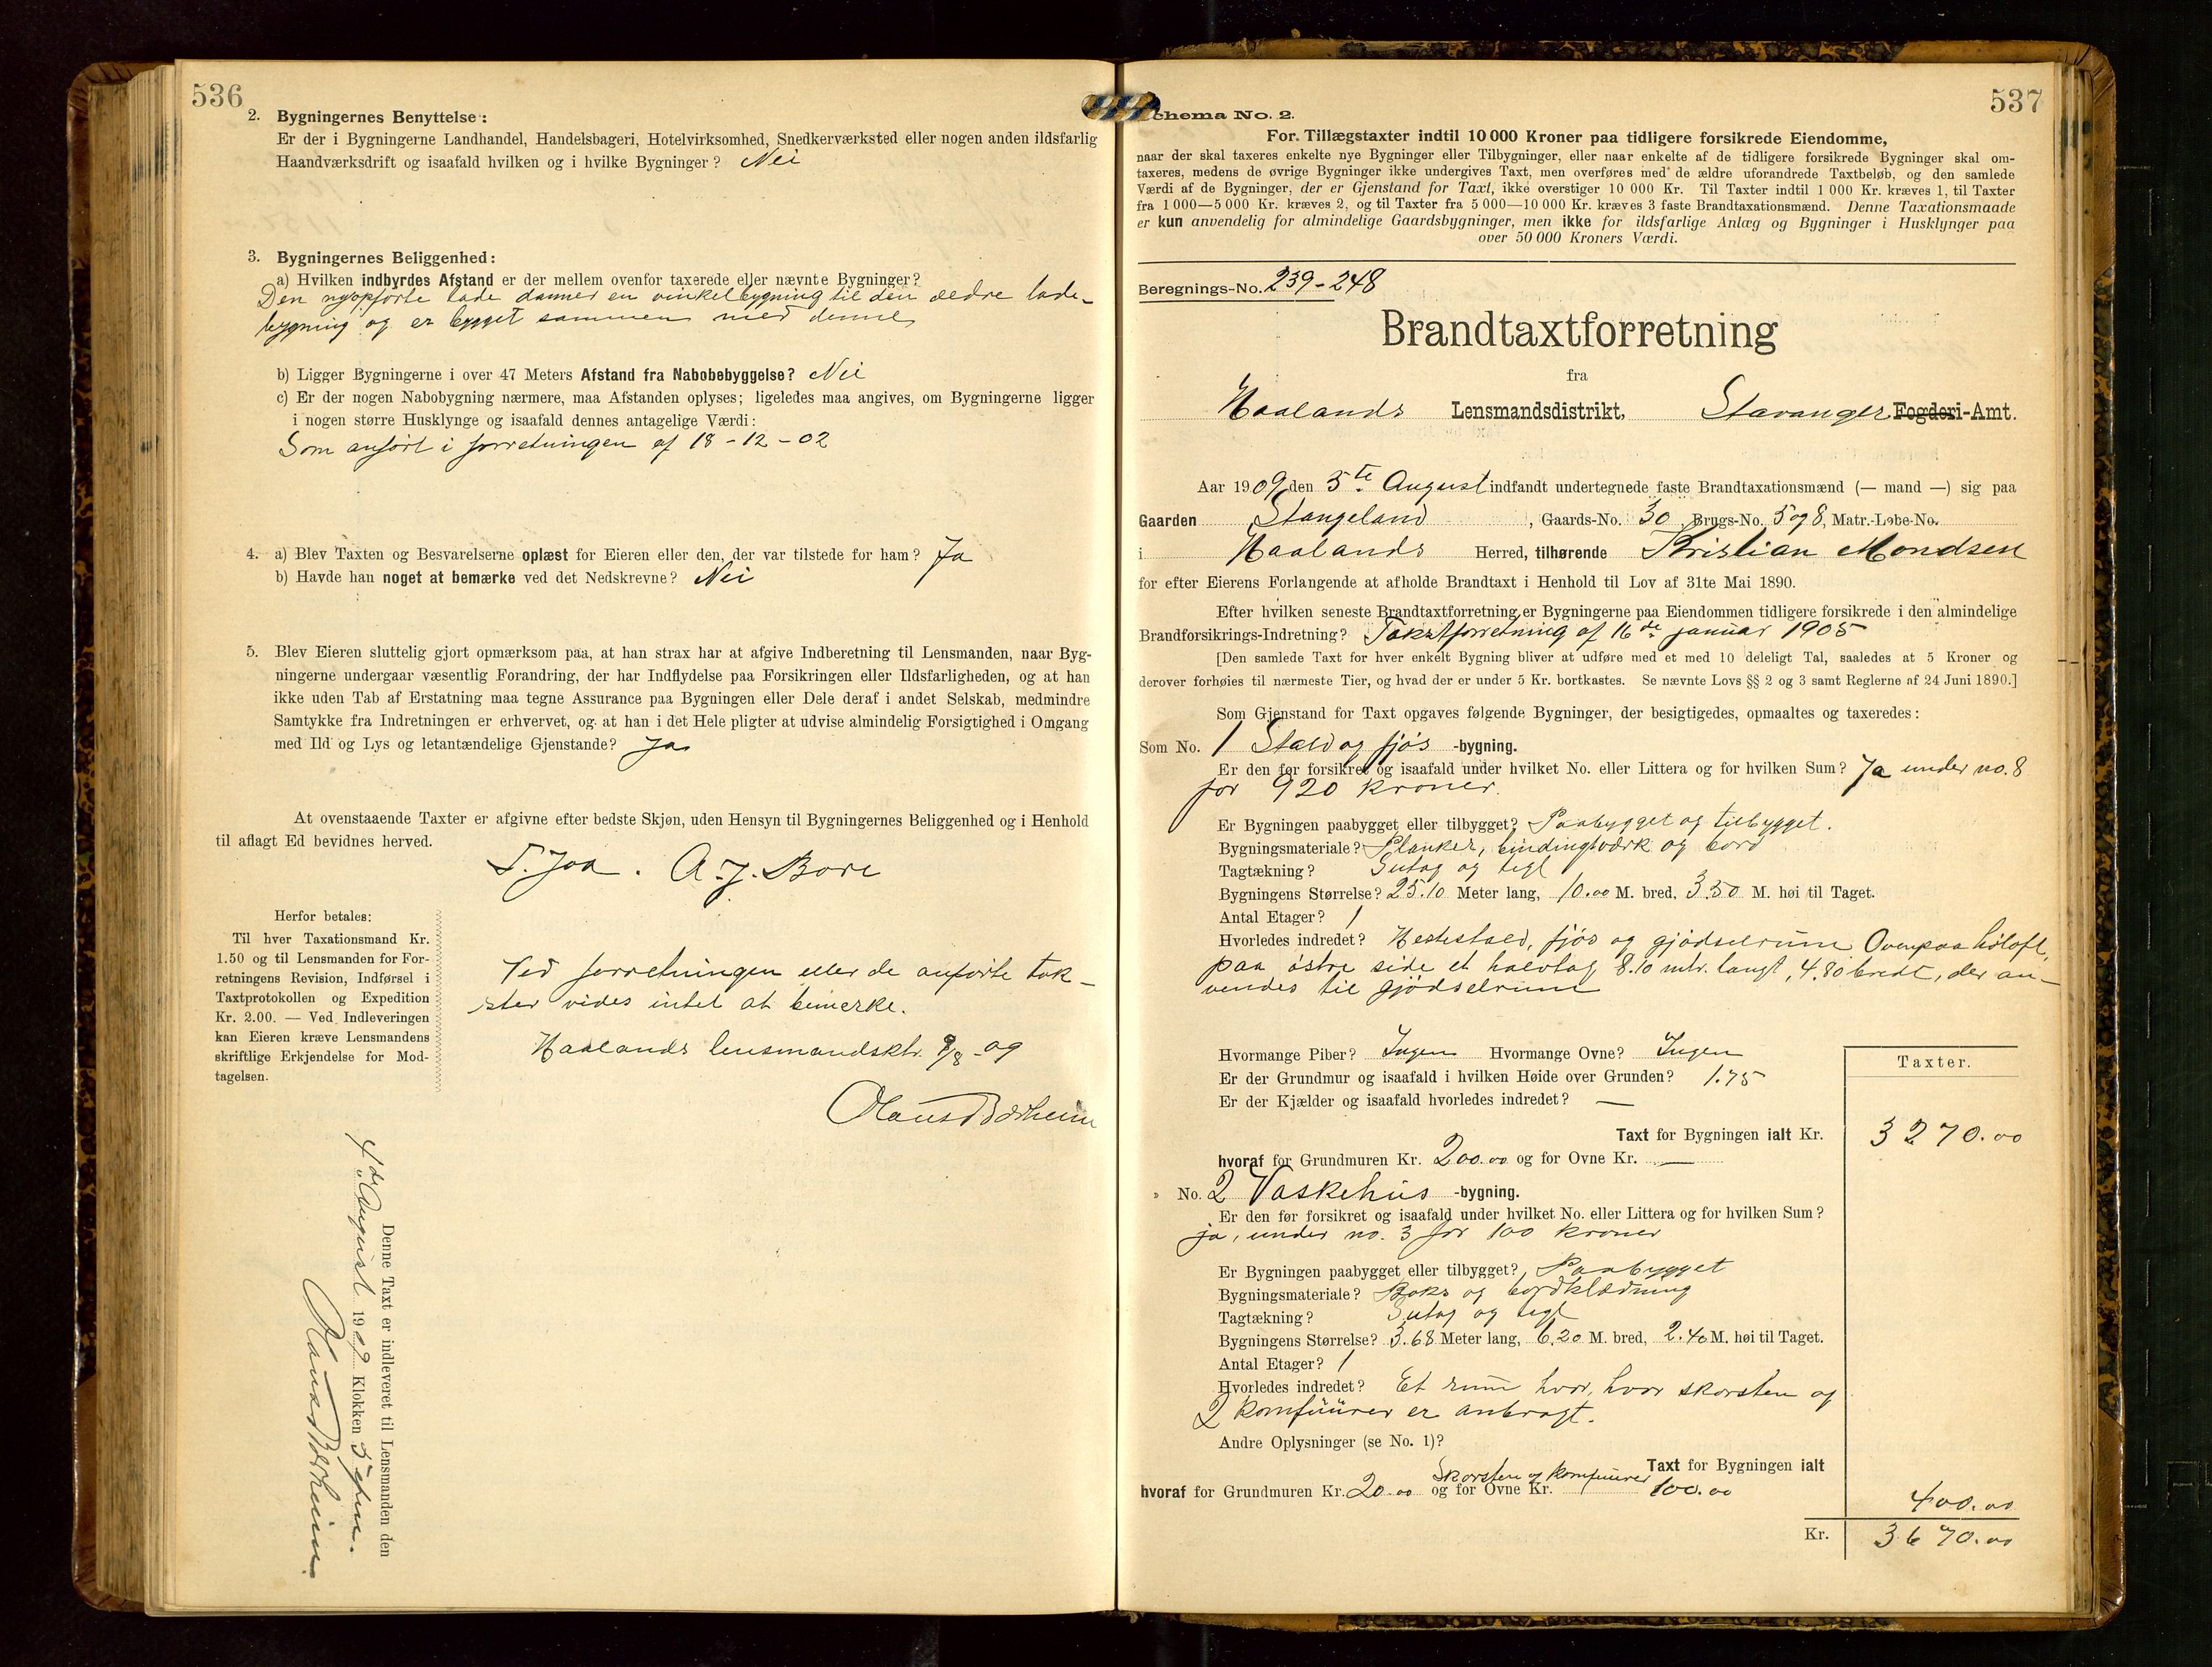 536
2. Bygningernes Benyttelse:
Er der i Bygningerne Landhandel, Handelsbageri, Hotelvirksomhed, Snedkerværksted eller nogen anden ildsfarlig
Haandværksdrift og isaafald hvilken og i hvilke Bygninger? Nei
3. Bygningernes Beliggenhed:
a) Hvilken indbyrdes Afstand er der mellem ovenfor taxerede eller nævnte Bygninger?
Den nyopførte lade danner en vinkelbygning til den ældre lade-
bygning og er bygget sammen med denne
b) Ligger Bygningerne i over 47 Meters Afstand fra Nabobebyggelse? Nei
c) Er der nogen Nabobygning nærmere, maa Afstanden oplyses; ligeledes maa angives, om Bygningerne ligger
i nogen større Husklynge og isaafald dennes antagelige Værdi:
Som anført i forretningen af 18-12-02
4. a) Blev Taxten og Besvarelserne oplæst for Eieren eller den, der var tilstede for ham? Ja
b) Havde han noget at bemærke ved det Nedskrevne? Nei
5. Blev Eieren sluttelig gjort opmærksom paa, at han strax har at afgive Indberetning til Lensmanden, naar Byg-
ningerne undergaar væsentlig Forandring, der har Indflydelse paa Forsikringen eller Ildsfarligheden, og at han
ikke uden Tab af Erstatning maa tegne Assurance paa Bygningen eller Dele deraf i andet Selskab, medmindre
Samtykke fra Indretningen er erhvervet, og at han i det Hele pligter at udvise almindelig Forsigtighed i Omgang
med Ild og Lys og letantændelige Gjenstande? Ja
At ovenstaaende Taxter er afgivne efter bedste Skjøn, uden Hensyn til Bygningernes Beliggenhed og i Henhold
til aflagt Ed bevidnes herved.
T. Joa. A. J. Bore
Herfor betales:
Til hver Taxationsmand Kr.
1.50 og til Lensmanden for For-
retningens Revision, Indførsel i
Taxtprotokollen og Expedition
Kr. 2.00. — Ved Indleveringen
kan Eieren kræve Lensmandens
skriftlige Erkjendelse for Mod-
tagelsen.
Ved forretningen eller de anførte tak-
ster vides intet at bemerke.
Haalands lensmandsktr. 9/8-09
Olaus Børheim
Denne Taxt er indleveret til Lensmanden den
4de August 1909 Klokken 5 efm.
Olaus Børheim
537
Schema No. 2.
For Tillægstaxter indtil 10 000 Kroner paa tidligere forsikrede Eiendomme,
naar der skal taxeres enkelte nye Bygninger eller Tilbygninger, eller naar enkelte af de tidligere forsikrede Bygninger skal om-
taxeres, medens de øvrige Bygninger ikke undergives Taxt, men overføres med de ældre uforandrede Taxtbeløb, og den samlede
Værdi af de Bygninger, der er Gjenstand for Taxt, ikke overstiger 10 000 Kr. Til Taxter indtil 1 000 Kr. kræves 1, til Taxter
fra 1 000—5 000 Kr. kræves 2, og til Taxter fra 5 000—10 000 Kr. kræves 3 faste Brandtaxationsmænd. Denne Taxationsmaade
er kun anvendelig for almindelige Gaardsbygninger, men ikke for ildsfarlige Anlæg og Bygninger i Husklynger paa
over 50 000 Kroners Værdi.
Beregnings-No. 239-248
Brandtaxtforretning
fra
Haalands Lensmandsdistrikt, Stavanger Fogderi-Amt.
Aar 1909 den 5te August indfandt undertegnede faste Brandtaxationsmænd (— mand —) sig paa
Gaarden Stangeland, Gaards-No. 30 Brugs-No. 5 og 8, Matr.-Løbe-No.
i Haalands Herred, tilhørende Kristian Mondsen
for efter Eierens Forlangende at afholde Brandtaxt i Henhold til Lov af 31te Mai 1890.
Efter hvilken seneste Brandtaxtforretning er Bygningerne paa Eiendommen tidligere forsikrede i den almindelige
Brandforsikrings-Indretning? Takstforretning af 16de januar 1905
[Den samlede Taxt for hver enkelt Bygning bliver at udføre med et med 10 deleligt Tal, saaledes at 5 Kroner og
derover forhøies til nærmeste Tier, og hvad der er under 5 Kr. bortkastes. Se nævnte Lovs §§ 2 og 3 samt Reglerne af 24 Juni 1890.]
Som Gjenstand for Taxt opgaves følgende Bygninger, der besigtigedes, opmaaltes og taxeredes:
Som No. 1 Stald og fjøs -bygning.
Er den før forsikret og isaafald under hvilket No. eller Littera og for hvilken Sum? Ja under no. 8
for 920 kroner.
Er Bygningen paabygget eller tilbygget? Paabygget og tilbygget.
Bygningsmateriale? Planker, bindingsværk og bord
Tagtækning? Sutag og tegl
Bygningens Størrelse? 25.10 Meter lang, 10.00 M. bred, 3.50 M. høi til Taget.
Antal Etager? 1
Hvorledes indredet? Hestestald, fjøs og gjødselrum Ovenpaa høloft,
paa østre side et halvtag 8.10 mtr. langt, 4.80 bredt, der an-
vendes til gjødselrum
Hvormange Piber? Ingen Hvormange Ovne? Ingen
Er der Grundmur og isaafald i hvilken Høide over Grunden? 1.75
Er der Kjælder og isaafald hvorledes indredet? —
Taxter.
Taxt for Bygningen ialt Kr. 3270.00
hvoraf for Grundmuren Kr. 200.00 og for Ovne Kr. —
" No. 2 Vaskehus -bygning.
Er den før forsikret og isaafald under hvilket No. eller Littera og for hvilken Sum?
ja, under no. 3 for 100 kroner
Er Bygningen paabygget eller tilbygget? Paabygget
Bygningsmateriale? Boks og bordklædning
Tagtækning? Sutag og tegl
Bygningens Størrelse? 3.68 Meter lang, 6.20 M. bred, 2.40 M. høi til Taget.
Antal Etager? 1
Hvorledes indredet? Et rum hvor, hvor skorsten og
2 komfuurer er anbragt.
Andre Oplysninger (se No. 1)?
Taxt for Bygningen ialt
Skorsten og komfuurer
hvoraf for Grundmuren Kr. 20.00 og for Ovne Kr. 100.00
400.00
Kr. 3670.00